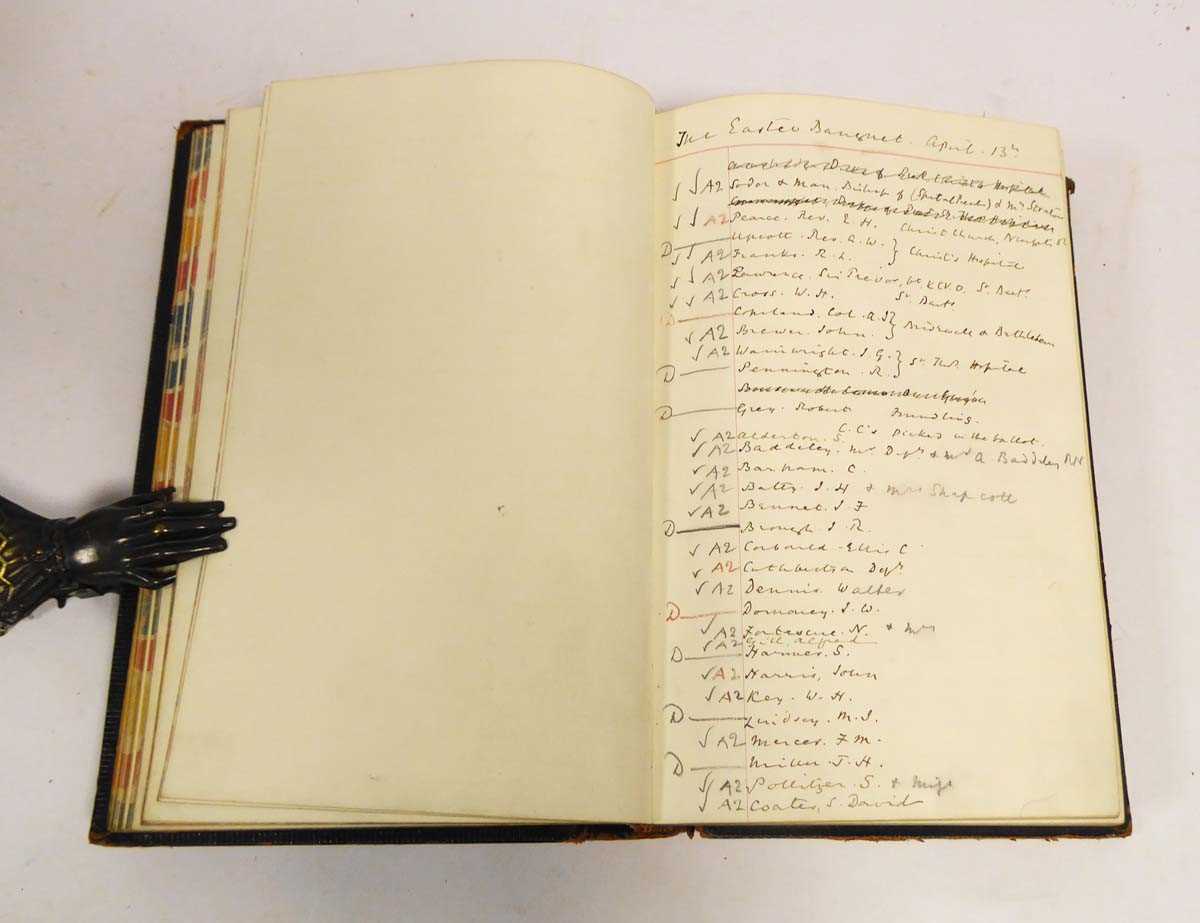 The Easter Banquet. April. 13th
√ √ A2 Sodor & Man. Bishop of & Mrs Straton
√ √ A2 Pearce. Rev. E. H. Christ Church, Newgate St
D — Upcott. Rev. A. W. } Christ's Hospital
√ √ A2 Franks. R. L.
√ √ A2 Lawrence. Sir Trevor, Bt KCVO. St Barts.
√ √ A2 Cross. W. H. St Barts
D — Copeland. Col. A. J } Bridewell & Bethlehem
√ A2 Brewer. John.
√ A2 Wainwright. J. G. } St Thos. Hospital
D — Pennington. R.
D — Grey. Robert Foundling.
C. C's picked in the ballot.
√ A2 Alderton. S.
√ A2 Baddeley. Mr Depy & Mrs A. Baddeley RN
√ A2 Barham. C.
√ A2 Batty. J. H & Mrs Shapcott
√ A2 Bennet. J. F
D — Brough. J. R.
√ A2 Corbould-Ellis C
√ A2 Cuthbertson Depy
√ A2 Dennis Walter
D — Domoney. J. W.
√ A2 Fortescue. N. & Mrs
√ A2 Gill, Alfred
D — Harmer. S.
√ A2 Harris, John
√ A2 Key. W. H.
D — Lindsey. M. J.
√ A2 Mercer. F M.
D — Miller J. H.
√ A2 Pollitzer. S. & Miss
√ A2 Coates, S. David